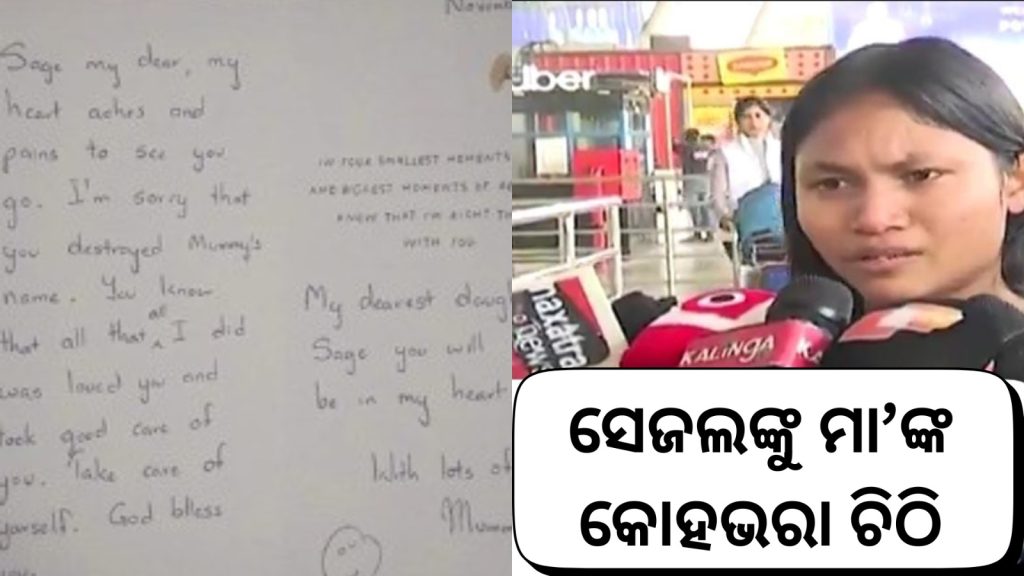 Novem
Sage my dear, my
heart aches and
pains to see you
go. I'm sorry that
you destroyed Mummy's
name. You know
that all that as I did
was loved you and
took good care of
you. Take care of
yourself. God blless
IN YOUR SMALLEST MOMENTS
AND BIGGEST MOMENTS OF
KNOW THAT I'M RIGHT TH
WITH YOU
My dearest daug
Sage you will
be in my heart
With lots of
Mumm
uber
naxatra
news
KALINGA
K
ସେଜଲଙ୍କୁ ମା'ଙ୍କ
କୋହଭରା ଚିଠି